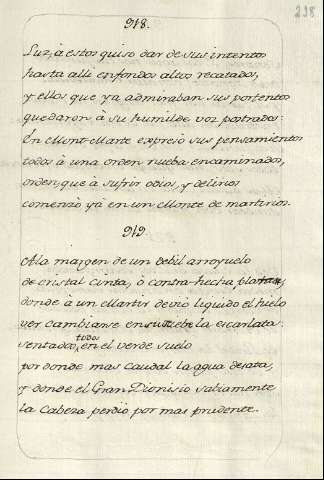 218
918.
Luz, à estos quiso dar de sus intentos
hasta alli enfondos altos recatados,
y ellos que ya admiraban sus portentos
quedaron à su humilde voz postrados:
En Mont-Marte expresò sus pensamientos
todos à una orden nueba encaminados,
orden, que à sufrir odios, y delirios
comenzò yà en un Monte de martirios.
919.
A la margen de un debil arroyuelo
de cristal cinta, ò contra-hecha plata,
donde à un Martir deviò liquido el hielo
ver cambiarse en nieve la escarlata:
todos
sentados, en el verde suelo
por donde mas caudal la agua desata,
y donde el Gran Dionisio sabiamente
la Cabeza perdiò por mas prudente.